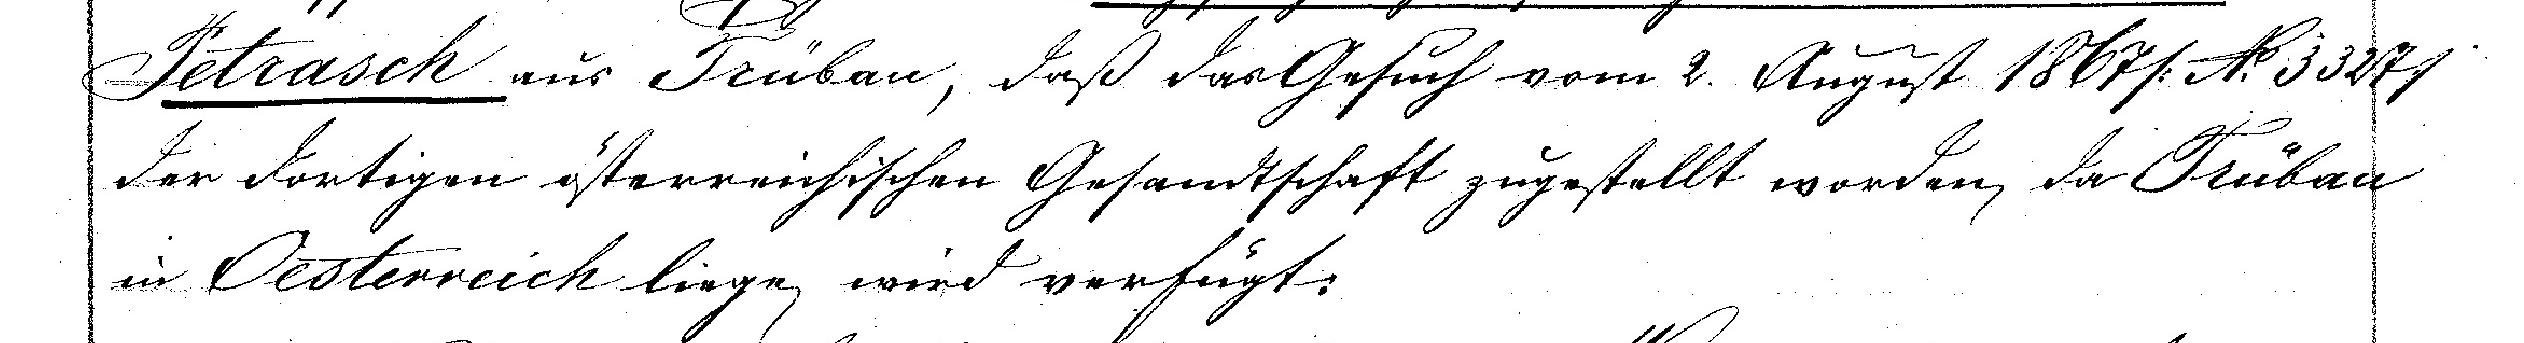 Petrasch aus Trübau, daß das Gesuch vom 2. August 1867 /: No 3327 /
der dortigen österreichischen Gesandtschaft zugestellt worden, da Trübau
in Oesterreich liege, wird verfügt: